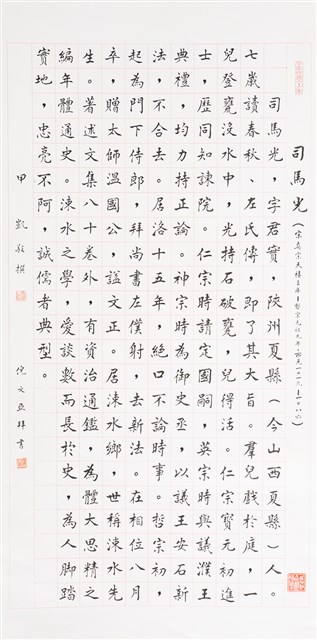 司馬光(宋真宗天禧三年至哲宗元祐元年,西元一○一九—一○八六)
司馬光,字君實,陝州夏縣(今山西夏縣)人。
七歲讀春秋、左氏傳,即了其大旨。羣兒戲於庭,一
兒登甕沒水中,光持石破甕,兒得活。仁宗寶元初進
士,歷同知諫院。仁宗時請定國嗣,英宗時與議濮王
典禮,均力持正論。神宗時為御史丞,以議王安石新
法,不合去。居洛十五年,絕口不論時事。哲宗初,
起為門下侍郎,拜尚書左僕射,去新法。在相位八月
卒,贈太師溫國公,諡文正。居涑水鄉,世稱涑水先
生。著述文集八十卷外,有資治通鑑,為體大思精之
編年體通史。涑水之學,愛談數而長於史,為人脚踏
實地,忠亮不阿,誠儒者典型。
甲凱敬撰 倪文亞拜書